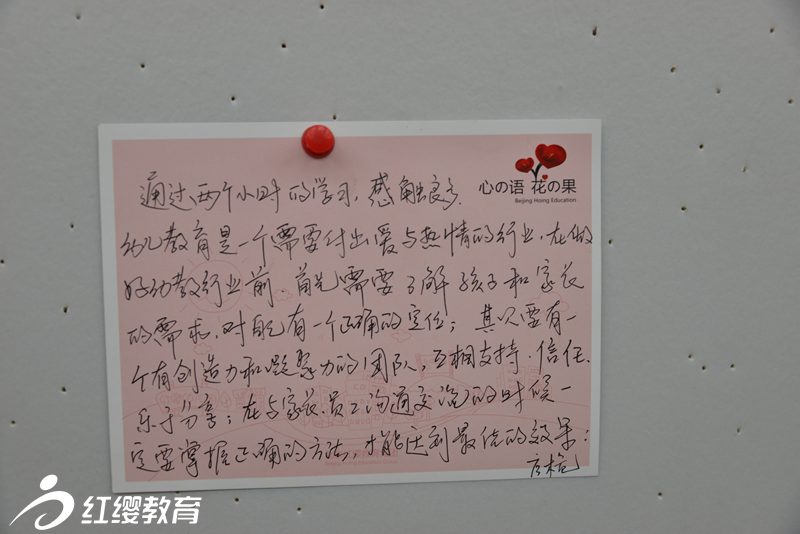 心の语 花の果
Beijing Hoing Education
通过两个小时的学习，感触很多，
幼儿教育是一个需要付出爱与热情的行业，在做
好幼教行业前，首先需要了解孩子和家长
的需求，对自己有一个正确的定位；其次要有一
个有创造力和凝聚力的团队，互相支持、信任、
乐于分享；在与家长、员工沟通交流的时候一
定要掌握正确的方法，才能达到最佳的效果！
红缨教育